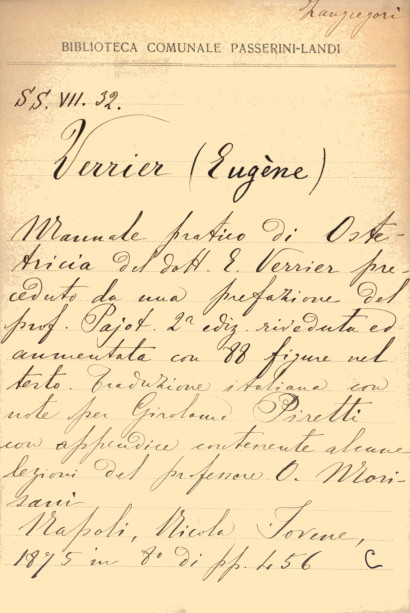 Zangregori
BIBLIOTECA COMUNALE PASSERINI-LANDI
SS. VII. 32.
Verrier (Eugène)
Manuale pratico di Oste-
tricia del dott. E. Verrier pre-
ceduto da una prefazione del
prof. Pajot. 2ª ediz. riveduta ed
aumentata con 88 figure nel
testo. Traduzione italiana con
note per Girolamo Piretti
con appendice contenente alcune
lezioni del professore O. Mori-
sani
Napoli, Nicola Jovene,
1875 in 8º di pp. 456 C